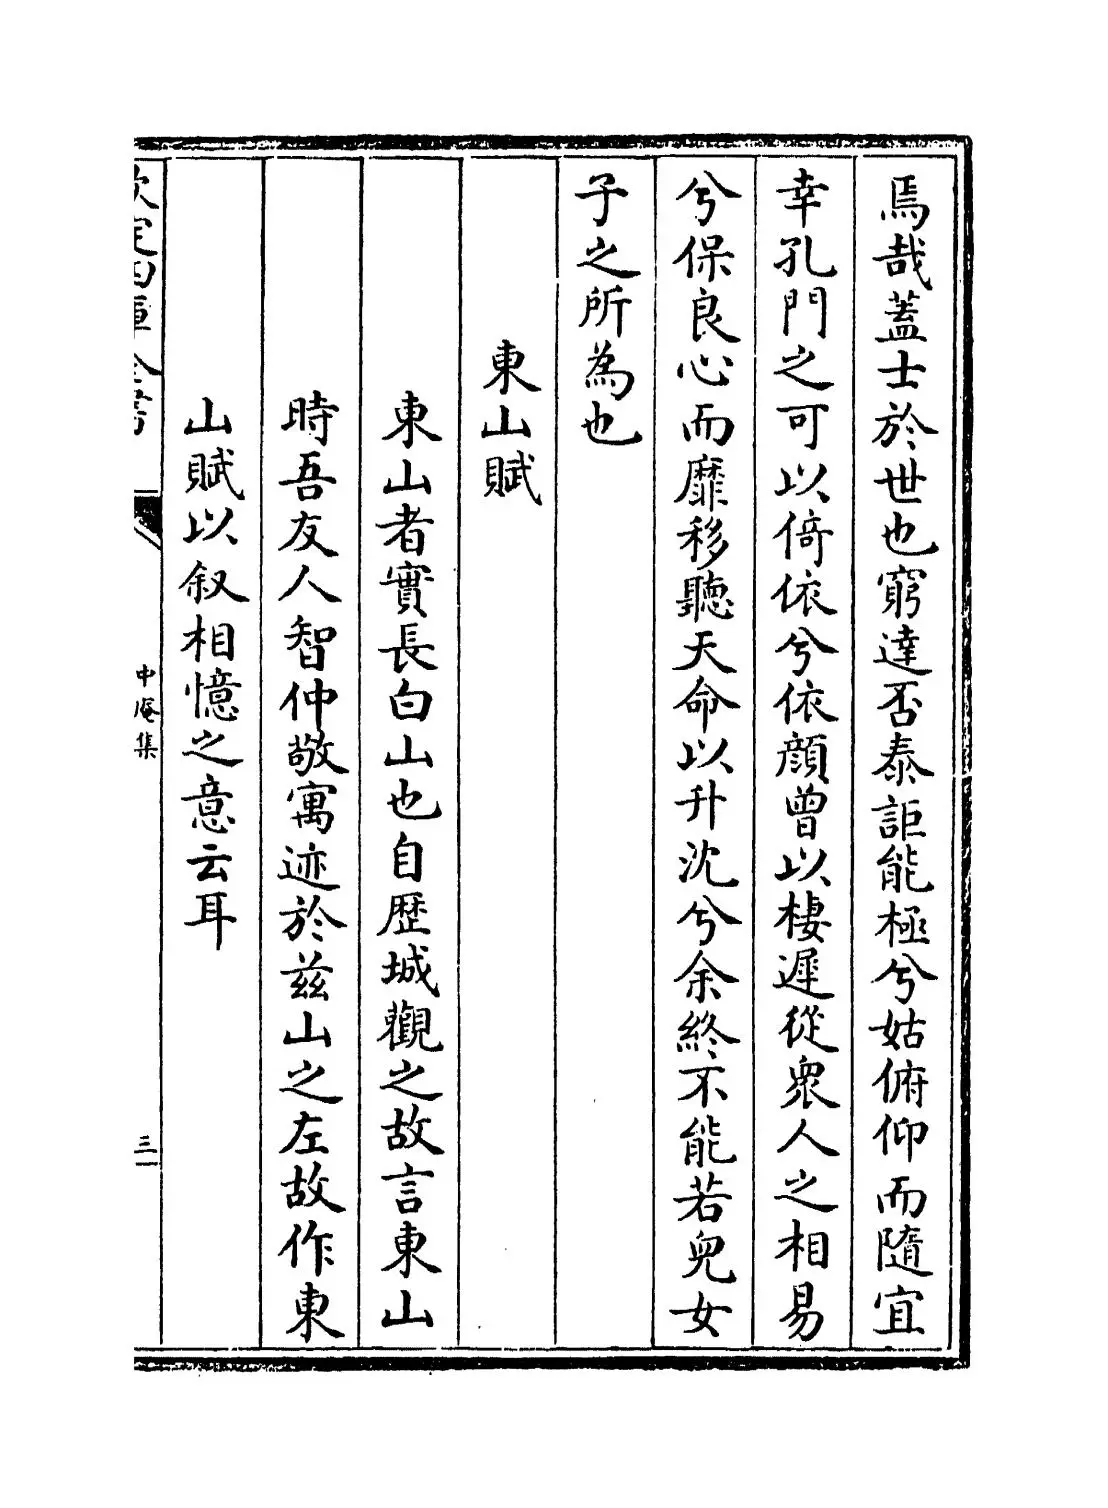 焉哉蓋士於世也窮達否泰詎能極兮姑俯仰而隨宜
幸孔門之可以倚依兮依顔曾以棲遲從衆人之相易
兮保良心而靡移聽天命以升沈兮余終不能若兒女
子之所為也
東山賦
東山者實長白山也自歴城觀之故言東山
時吾友人智仲敬寓迹於兹山之左故作東
山賦以叙相憶之意云耳
欽定四庫全書
中庵集
三